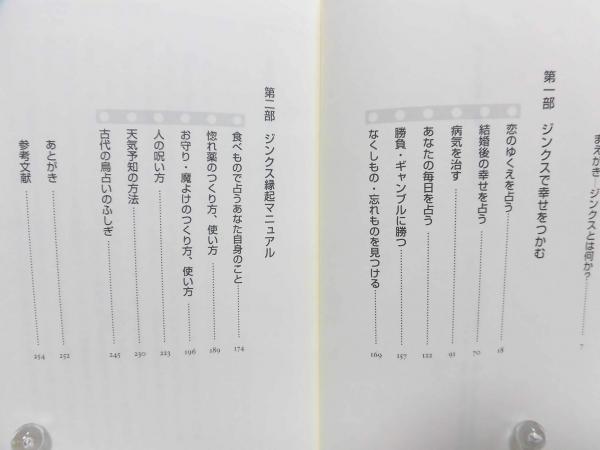 まえがき―ジンクスとは何か？……7
第一部　ジンクスで幸せをつかむ
恋のゆくえを占う……18
結婚後の幸せを占う……70
病気を治す……91
あなたの毎日を占う……122
勝負・ギャンブルに勝つ……157
なくしもの・忘れものを見つける……169
第二部　ジンクス縁起マニュアル
食べもので占うあなた自身のこと……174
惚れ薬のつくり方、使い方……189
お守り・魔よけのつくり方、使い方……196
人の呪い方……223
天気予知の方法……230
古代の鳥占いのふしぎ……245
あとがき……252
参考文献……254